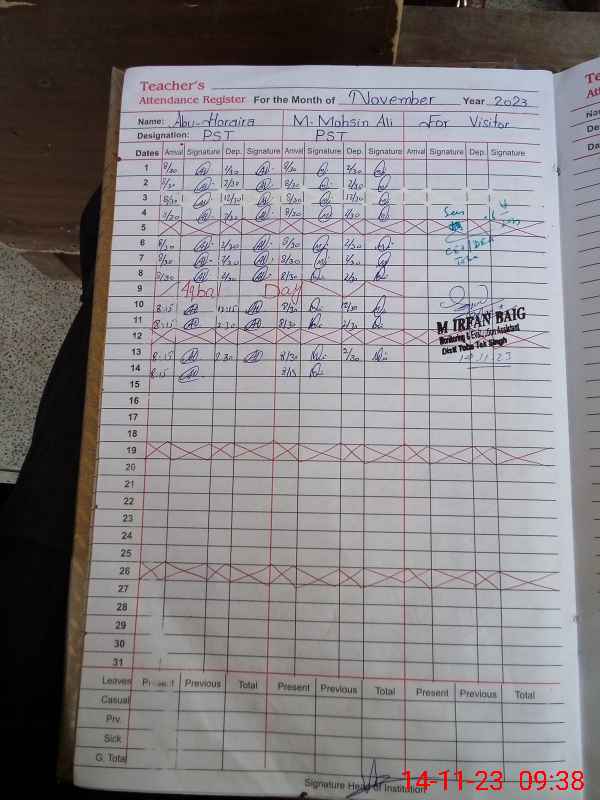 Teacher's
Attendance Register For the Month of November Year 2023
Name: Abu-Horaira M. Mohsin Ali For Visitor
Designation: PST PST
Dates Arrival Signature Dep. Signature Arrival Signature Dep. Signature Arrival Signature Dep. Signature
1 8/30 2/30 8/30 2/30
2 8/30 2/30 8/30 2/30
3 8/30 12/30 8/30 12/30
4 8/30 2/30 8/30 2/30
5
6 8/30 2/30 8/30 2/30
7 8/30 2/30 8/30 2/30
8 8/30 2/30 8/30 2/30
9 Iqbal Day
10 8:15 12:15 8/30 12/30
11 8:15 2:30 8/30 2/30
M IRFAN BAIG
Monitoring & Evaluation Assistant
Distt Toba Tek Singh
14.11.23
12
13 8:15 2:30 8/30 2/30
14 8:15 8/15
15
16
17
18
19
20
21
22
23
24
25
26
27
28
29
30
31
Leaves Present Previous Total Present Previous Total Present Previous Total
Casual
Prv.
Sick
G. Total
Signature Head of Institution
14-11-23 09:38